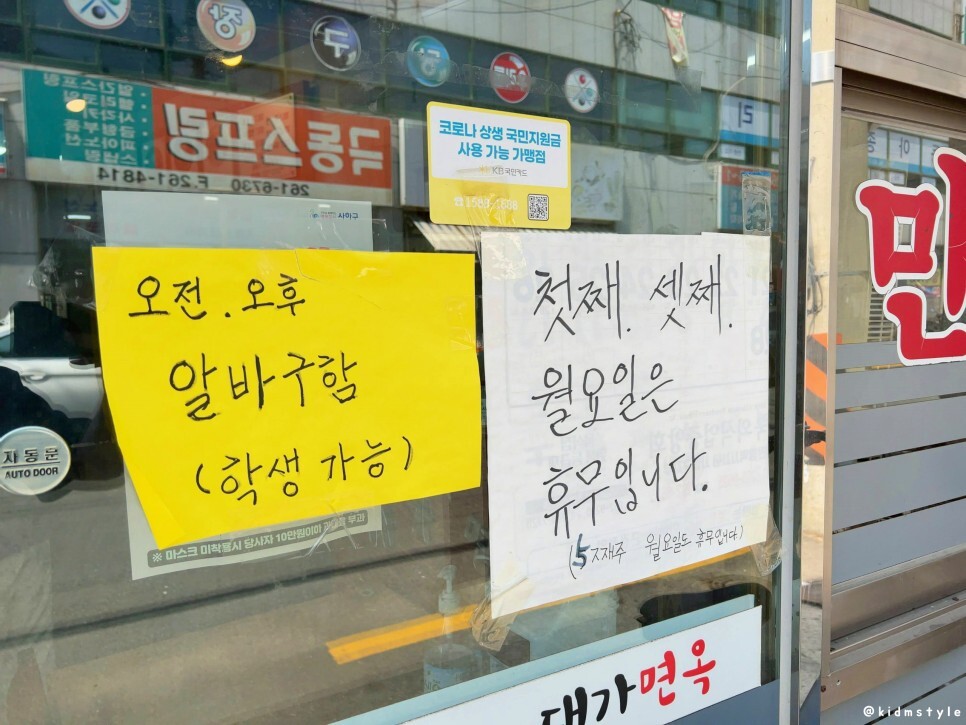 코로나 상생 국민지원금
사용 가능 가맹점
KB국민카드
☎1588-1688
극동스프링
261-6730 F.261-4814
사하구
오전. 오후
알바구함
(학생 가능)
※ 마스크 미착용시 당사자 10만원이하 과태료 부과
첫째. 셋째.
월요일은
휴무입니다.
(5째주 월요일도 휴무입니다)
자동문
AUTO DOOR
대가면옥
만
@kidmstyle